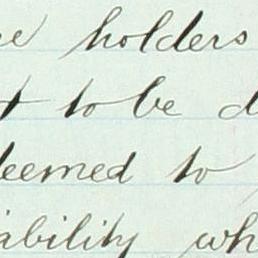 holders
to be
deemed to
ability wh